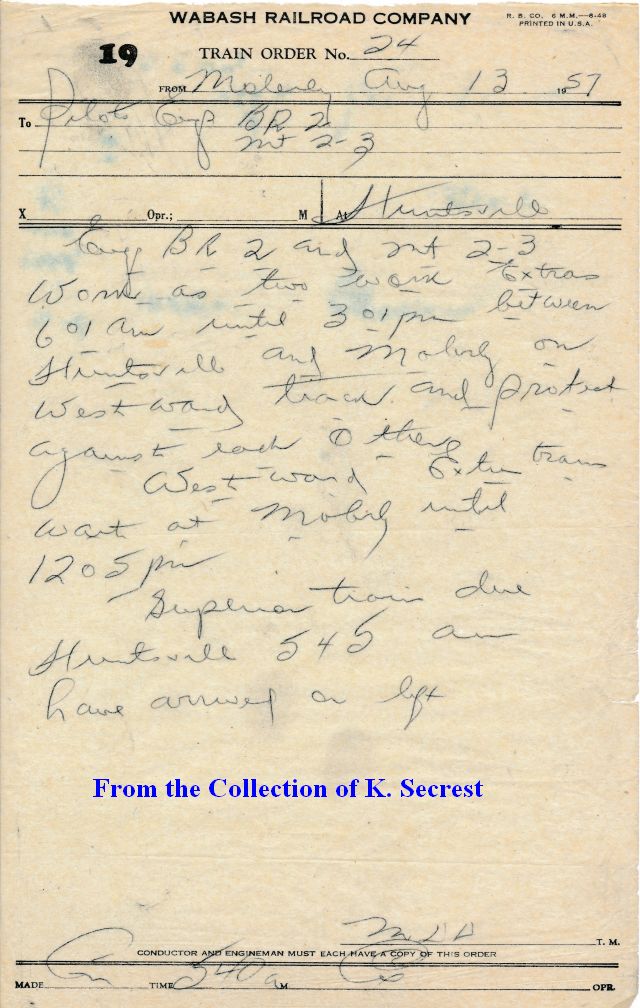 WABASH RAILROAD COMPANY
R. B. CO. 6 M.M.—6-48
PRINTED IN U.S.A.
19
TRAIN ORDER No. 24
FROM Moberly Aug 13 1957
To Pilots Eng BR 2
MT 2-3
X Opr.; M At Huntsville
Eng BR 2 and MT 2-3
Work as two work Extras
6 01 am until 3 01 pm between
Huntsville and Moberly on
West ward track and protect
against each other
West ward Extra trains
wait at Moberly until
12 05 pm
Superior trains due
Huntsville 5 45 am
have arrived or left
From the Collection of K. Secrest
T. M.
CONDUCTOR AND ENGINEMAN MUST EACH HAVE A COPY OF THIS ORDER
MADE Com TIME 540 a M OPR.